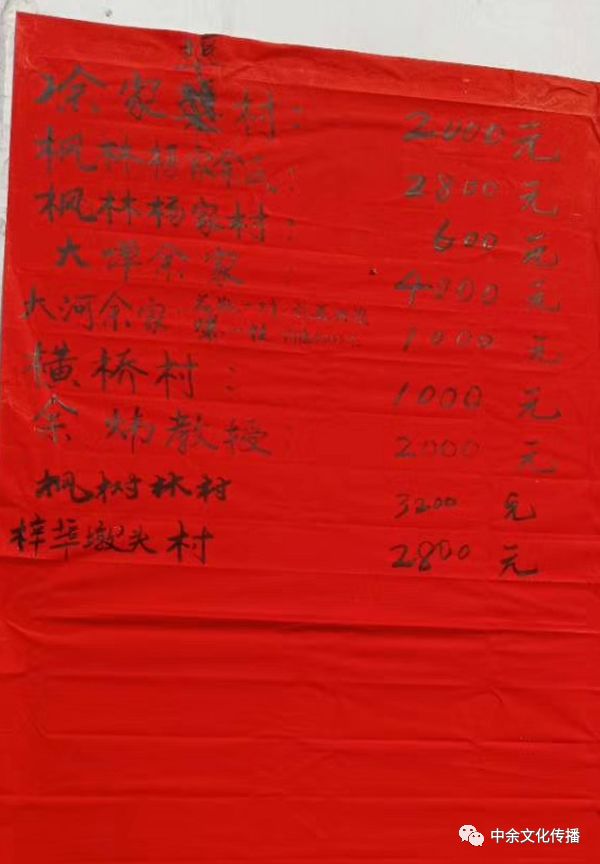 埠
涂家村: 2000元
枫林杨家余氏: 2800元
枫林杨家村: 600元
大墠余家: 4000元
大河余家 1000元
横桥村: 1000元
余炳教授: 2000元
枫树林村 3200元
梓埠墩头村 2800元
中余文化传播